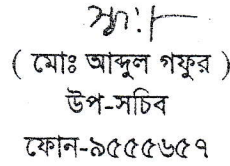 স্বা:/-
( মোঃ আব্দুল গফুর )
উপ-সচিব
ফোন-৯৫৫৫৬৫৭